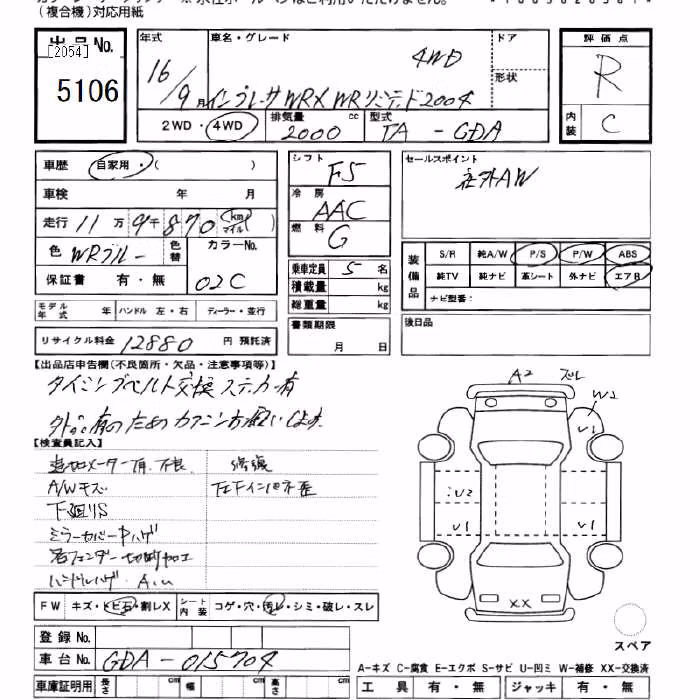 (複合機)対応用紙
出品No.
[2054]
5106
年式 車名・グレード ドア
16/9月 インプレッサWRX WRリミテッド2004 4WD
形状
2WD・4WD 排気量 2000 cc 型式 TA-GDA
評価点
R
内装 C
車歴 自家用・( )
車検 年 月
走行 11万9千870 km マイル
色 WRブルー 色替 カラーNo. 02C
保証書 有・無
モデル年式 年 ハンドル 左・右 ディーラー・並行
リサイクル料金 12880 円 預託済
シフト F5
冷房 AAC
燃料 G
乗車定員 5 名
積載量 kg
総重量 kg
書類期限
月 日
セールスポイント
社外AW
装備品 S/R 純A/W P/S P/W ABS
純TV 純ナビ 革シート 外ナビ エアB
ナビ型番:
後日品
【出品店申告欄(不良箇所・欠品・注意事項等)】
タイミングベルト交換 ステッカー有
【検査員記入】
A/Wキズ
下廻りS
ミラーカバーPハゲ
右フェンダー切断加工
FW キズ・トビ石・割レX シート内装 コゲ・穴・汚レ・シミ・破レ・スレ
登録No.
車台No. GDA-015704
車庫証明用 長さ cm 幅 cm 高さ cm
A2 ズレ
W2
U1
U2
U1
U1
XX
スペア
A-キズ C-腐食 E-エクボ S-サビ U-凹ミ W-補修 XX-交換済
工具 有・無 ジャッキ 有・無